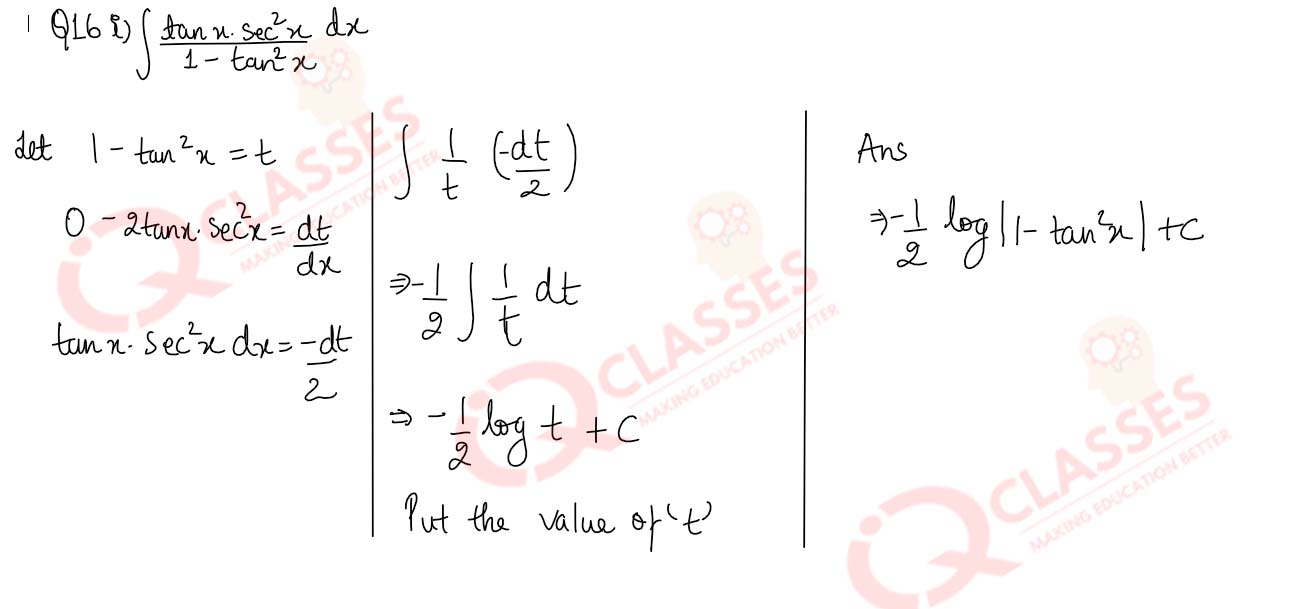 Q16 i) ∫ tan x. sec²x / 1 - tan²x dx
Let 1 - tan²x = t
0 - 2tanx. sec²x = dt/dx
tan x. sec²x dx = -dt/2
∫ 1/t (-dt/2)
⇒ -1/2 ∫ 1/t dt
⇒ -1/2 log t + C
Put the value of 't'
Ans
⇒ -1/2 log |1 - tan²x| + C
IQ CLASSES
MAKING EDUCATION BETTER
IQ CLASSES
MAKING EDUCATION BETTER
IQ CLASSES
MAKING EDUCATION BETTER